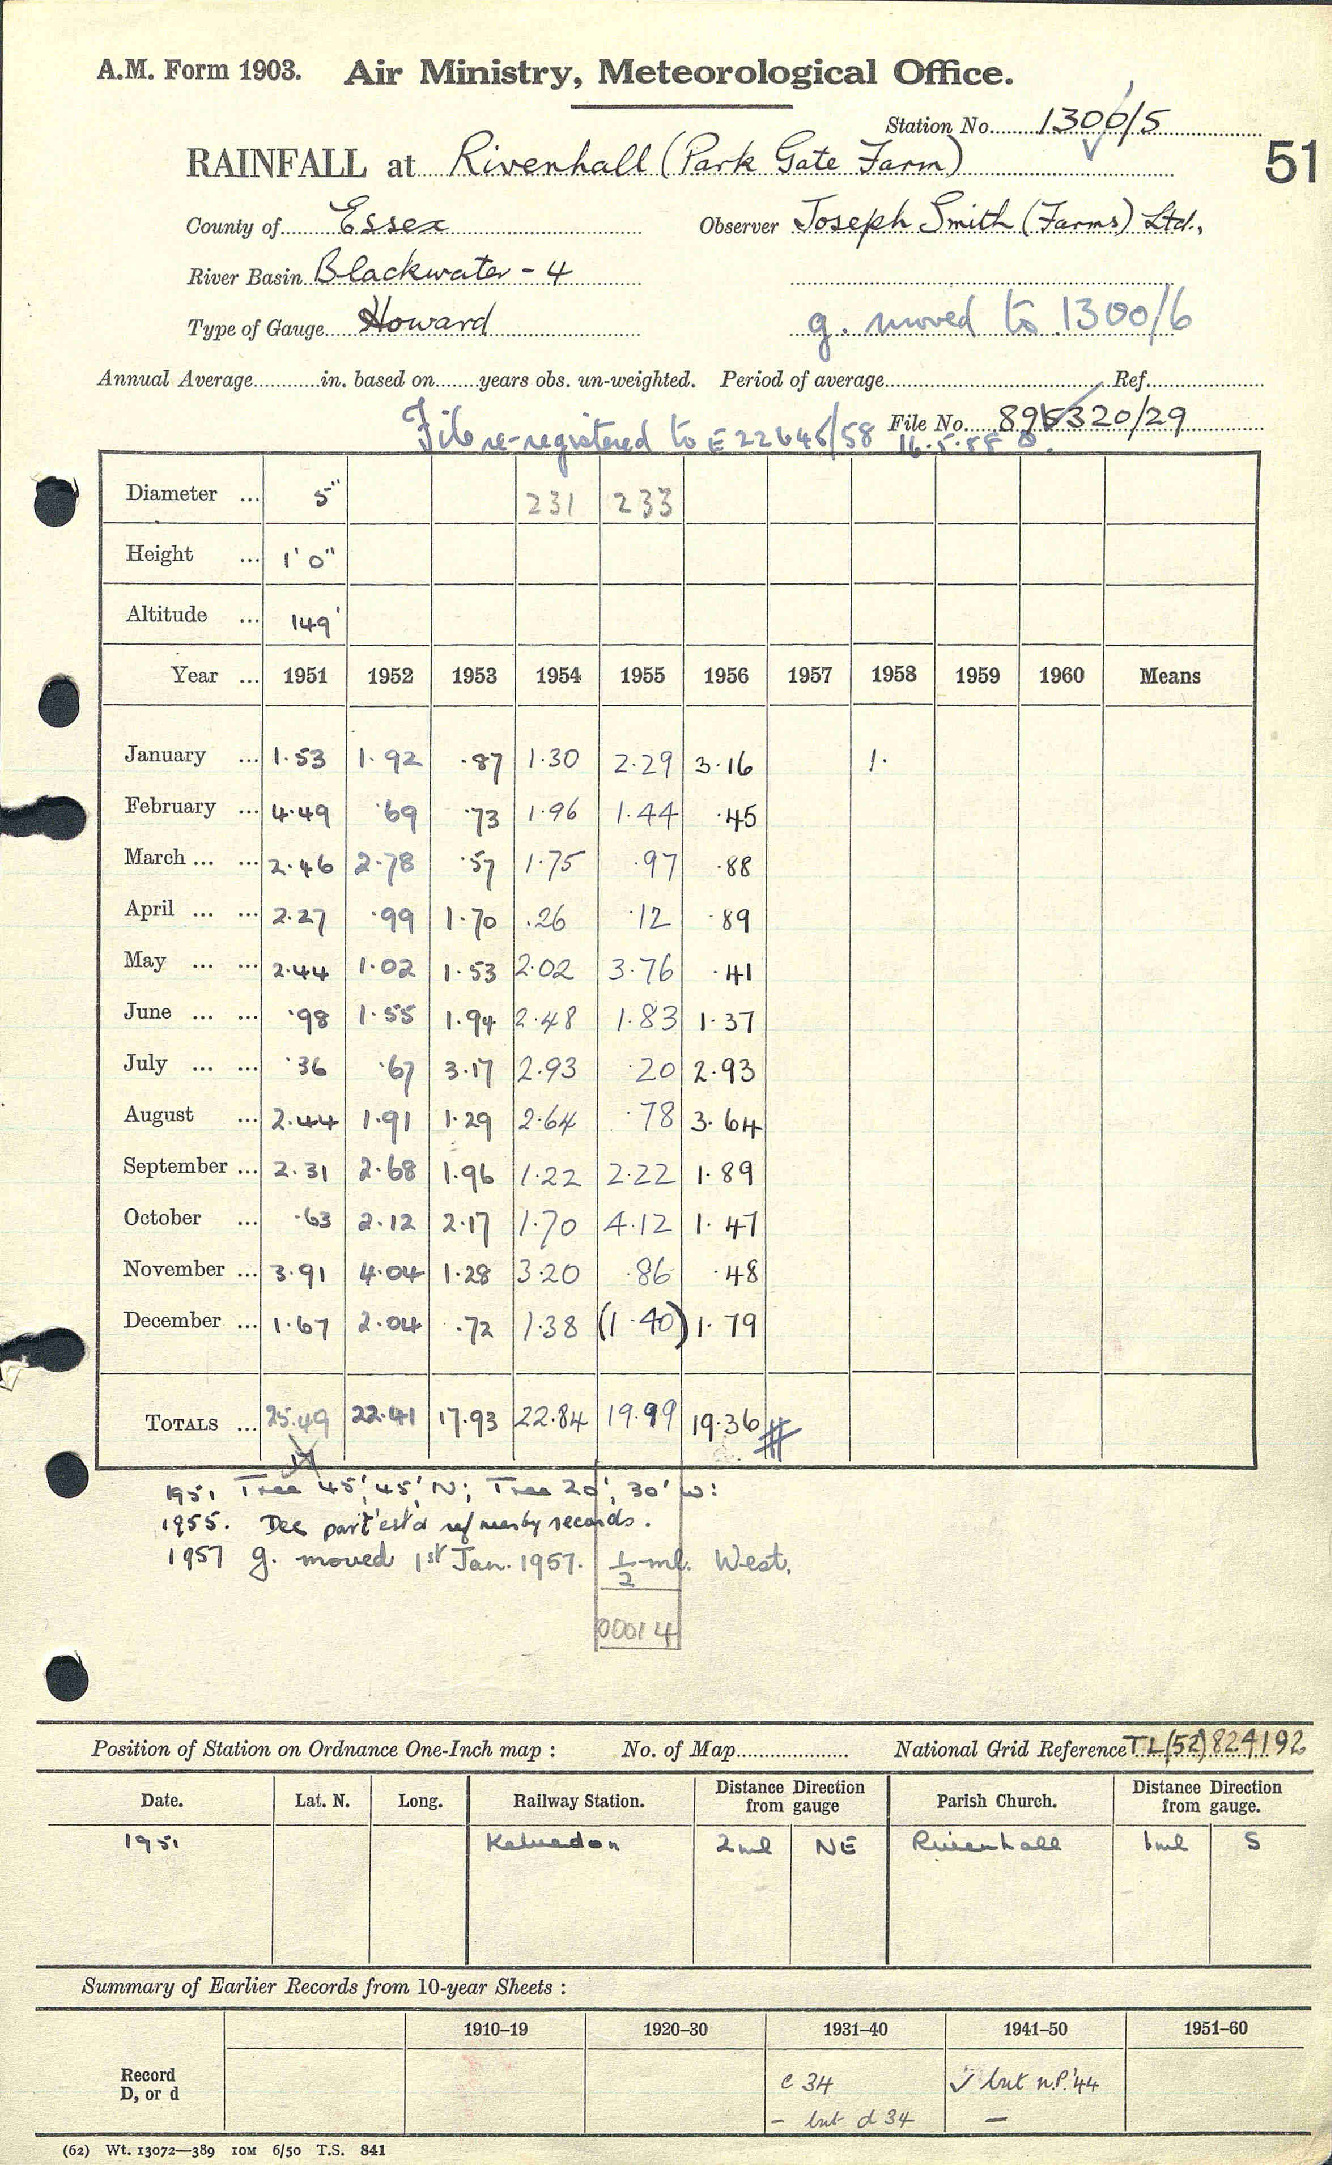 A.M. Form 1903. Air Ministry, Meteorological Office.
Station No. 1300/5
RAINFALL at Rivenhall (Park Gate Farm)
51
County of Essex Observer Joseph Smith (Farms) Ltd.,
River Basin Blackwater - 4
Type of Gauge Howard g. moved to 1300/6
Annual Average in. based on years obs. un-weighted. Period of average Ref.
File re-registered to E 22646/58 16.5.58 File No. 895320/29
Diameter ... 5" 231 233
Height ... 1' 0"
Altitude ... 149'
Year ... 1951 1952 1953 1954 1955 1956 1957 1958 1959 1960 Means
January ... 1.53 1.92 .87 1.30 2.29 3.16 1.
February ... 4.49 .69 .73 1.96 1.44 .45
March ... ... 2.46 2.78 .57 1.75 .97 .88
April ... ... 2.27 .99 1.70 .26 .12 .89
May ... ... 2.44 1.02 1.53 2.02 3.76 .41
June ... ... .98 1.55 1.94 2.48 1.83 1.37
July ... ... .36 .67 3.17 2.93 .20 2.93
August ... 2.44 1.91 1.29 2.64 .78 3.64
September ... 2.31 2.68 1.96 1.22 2.22 1.89
October ... .63 2.12 2.17 1.70 4.12 1.47
November ... 3.91 4.04 1.28 3.20 .86 .48
December ... 1.67 2.04 .72 1.38 (1.40) 1.79
TOTALS ... 25.49 22.41 17.93 22.84 19.99 19.36 #
1951 Tree 45', 45' N; Tree 20', 30' W:
1955. Dec part est'd nearby records.
1957 g. moved 1st Jan. 1957. 1/2 ml. West.
00014
Position of Station on Ordnance One-Inch map : No. of Map National Grid Reference TL(52)824192
Date. Lat. N. Long. Railway Station. Distance Direction from gauge Parish Church. Distance Direction from gauge.
1951 Kelvedon 2ml NE Rivenhall 1ml S
Summary of Earlier Records from 10-year Sheets :
1910–19 1920–30 1931–40 1941–50 1951–60
Record c 34 ✓ but n.P. '44
D, or d – but d 34 –
(62) Wt. 13072—389 10M 6/50 T.S. 841